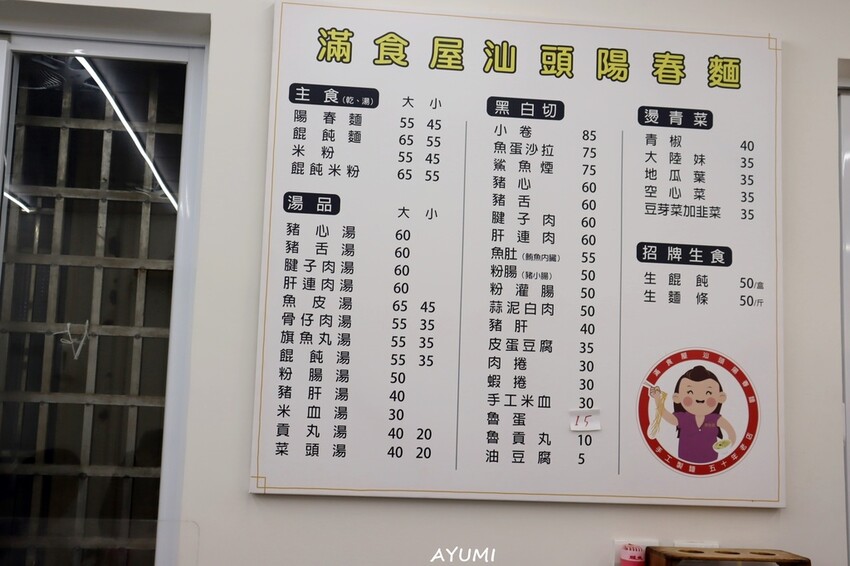 滿食屋汕頭陽春麵
主食(乾、湯) 大 小
陽春麵 55 45
餛飩麵 65 55
米粉 55 45
餛飩米粉 65 55
湯品 大 小
豬心湯 60
豬舌湯 60
腱子肉湯 60
肝連肉湯 60
魚皮湯 65 45
骨仔肉湯 55 35
旗魚丸湯 55 35
餛飩湯 55 35
粉腸湯 50
豬肝湯 40
米血湯 30
貢丸湯 40 20
菜頭湯 40 20
黑白切
小卷 85
魚蛋沙拉 75
鯊魚煙 75
豬心 60
豬舌 60
腱子肉 60
肝連肉 60
魚肚(鮪魚內臟) 55
粉腸(豬小腸) 50
粉灌腸 50
蒜泥白肉 50
豬肝 40
皮蛋豆腐 35
肉捲 30
蝦捲 30
手工米血 30
魯蛋 15
魯貢丸 10
油豆腐 5
燙青菜
青椒 40
大陸妹 35
地瓜葉 35
空心菜 35
豆芽菜加韭菜 35
招牌生食
生餛飩 50/盒
生麵條 50/斤
滿食屋 汕頭陽春麵
手工製麵 五十年老店
AYUMI